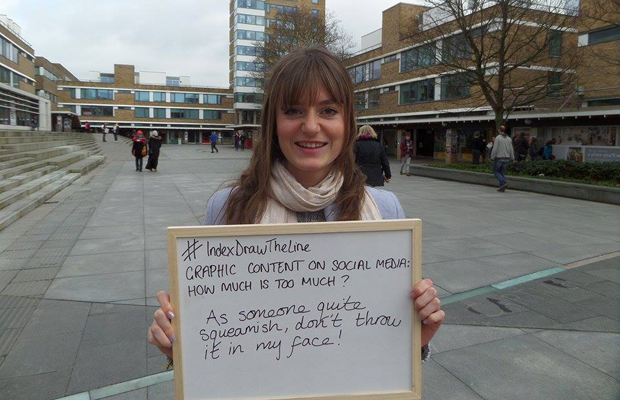 #IndexDrawTheLine
GRAPHIC CONTENT ON SOCIAL MEDIA:
HOW MUCH IS TOO MUCH?
As someone quite
squeamish, don't throw
it in my face!